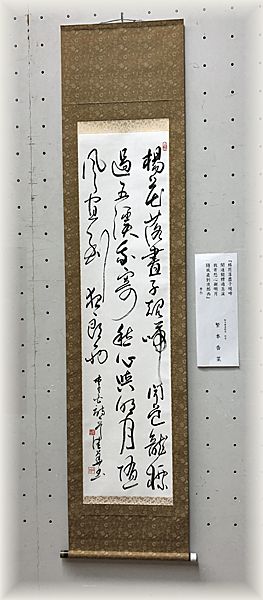 楊花落盡子規啼聞道龍標
過五溪我寄愁心與明月隨
風直到夜郎西
「楊花落盡子規啼
聞道龍標過五溪
我寄愁心與明月
隨風直到夜郎西」